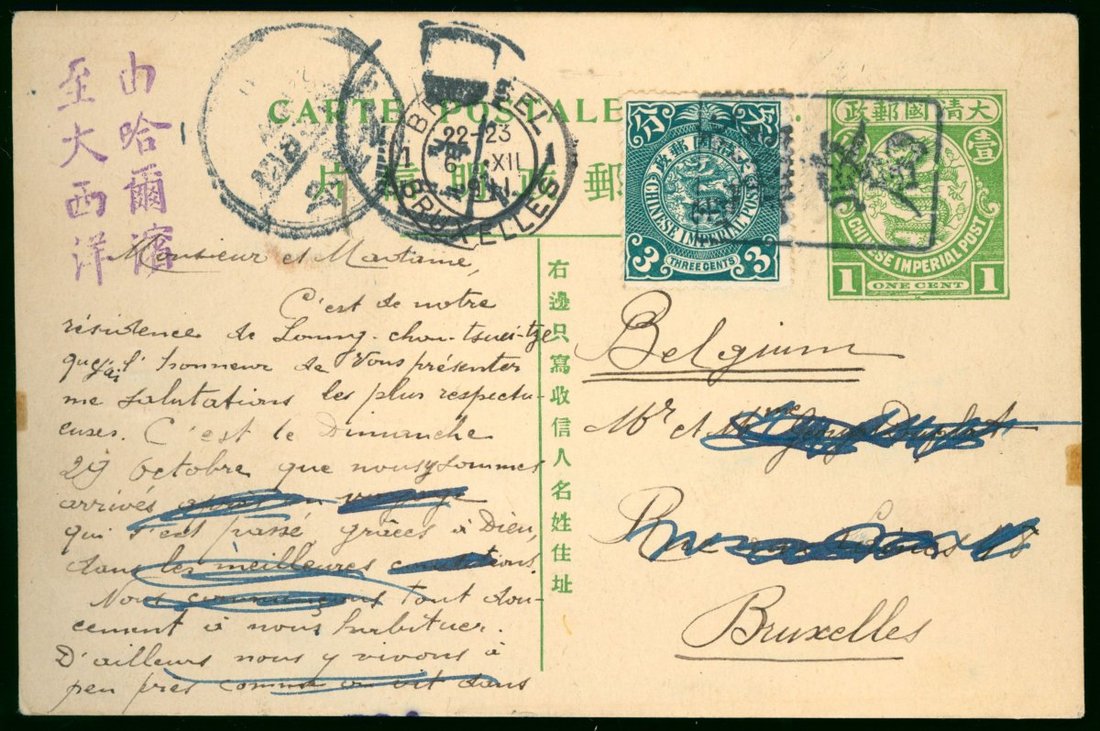 由哈爾濱
至大西洋
CARTE POSTALE
大清國郵政
壹
CHINESE IMPERIAL POST
1 ONE CENT 1
大清國郵政
CHINESE IMPERIAL POST
3 THREE CENTS 3
BRUXELLES
22-23
XII
BRUSSEL
右邊只寫收信人名姓住址
Monsieur et Madame,
C'est de notre
résidence de Loung-chou-tsuei-tze
que j'ai l'honneur de Vous présenter
me salutations les plus respectu-
euses. C'est le Dimanche
29 octobre que nous y sommes
arrivés après un voyage
qui s'est passé grâces à Dieu,
dans les meilleures conditions.
Nous commençons tout dou-
cement à nous habituer.
D'ailleurs nous y vivons à
peu près comme on vit dans
Belgium
Mr et Mme
Bruxelles